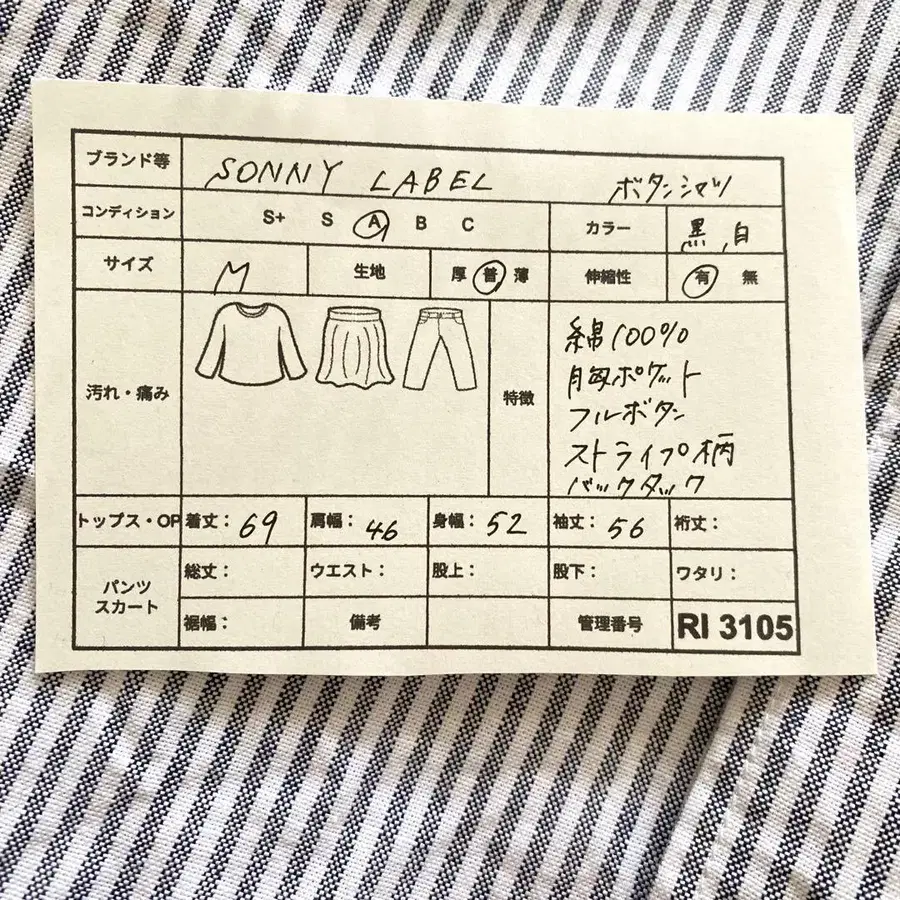 ブランド等 SONNY LABEL ボタンシャツ
コンディション S+ S A B C カラー 黒,白
サイズ M 生地 厚 普 薄 伸縮性 有 無
汚れ・痛み 特徴
綿100%
胸ポケット
フルボタン
ストライプ柄
バックタック
トップス・OP 着丈: 69 肩幅: 46 身幅: 52 袖丈: 56 裄丈:
パンツ
スカート
総丈: ウエスト: 股上: 股下: ワタリ:
裾幅: 備考 管理番号 RI 3105